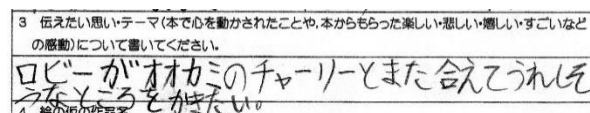 3 伝えたい思い・テーマ(本で心を動かされたことや、本からもらった楽しい・悲しい・嬉しい・すごいなど
の感動)について書いてください。
ロビーがオオカミのチャーリーとまた合えてうれしそ
うなところをかきたい。